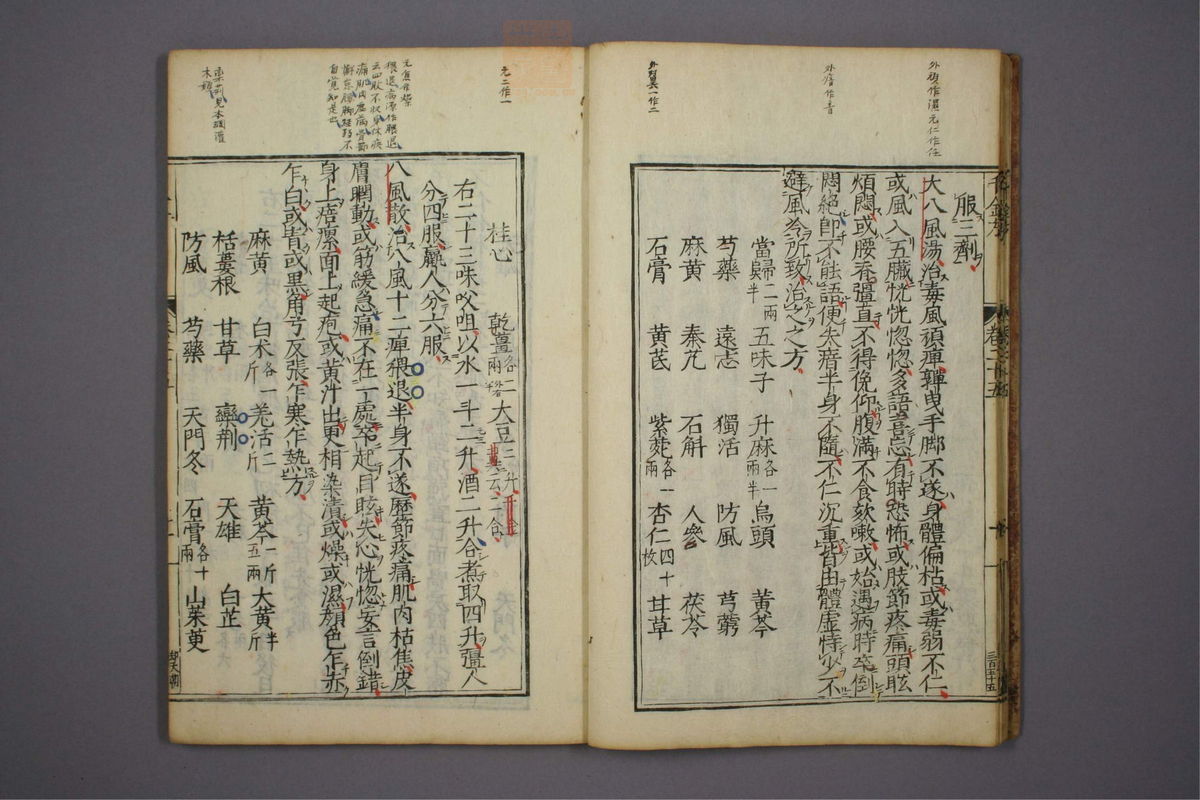 服二劑
大八風湯治毒風頑痺嚲曳手脚不遂身體偏枯或毒弱不仁
或風入五臟恍恍惚惚多語喜忘有時恐怖或肢節疼痛頭眩
煩悶或腰脊彊直不得俛仰腹滿不食欬嗽或始遇病時卒倒
悶絕即不能語便失瘖半身不隨不仁沉重皆由體虛恃少不
避風冷所致治之之方
當歸二兩半 五味子 升麻各一兩半 烏頭 黃芩
芍藥 遠志 獨活 防風 芎藭
麻黃 秦艽 石斛 人參 茯苓
石膏 黃芪 紫菀各一兩 杏仁四十枚 甘草
桂心 乾薑各二兩 大豆二升
右二十三味㕮咀以水一斗二升酒二升合煮取四升彊人
分四服羸人分六服
八風散治八風十二痺猥退半身不遂歷節疼痛肌肉枯焦皮
膚瞤動或筋緩急痛不在一處卒起目眩失心恍惚妄言倒錯
身上瘖瘰面上起疱或黃汁出更相染漬或燥或濕顏色乍赤
乍白或青或黑角弓反張乍寒乍熱方
麻黃 白朮各一斤 羌活二斤 黃芩一斤五兩 大黃半斤
栝蔞根 甘草 欒荆 天雄 白芷
防風 芍藥 天門冬 石膏各十兩 山茱萸
外瘖作音
元二作一